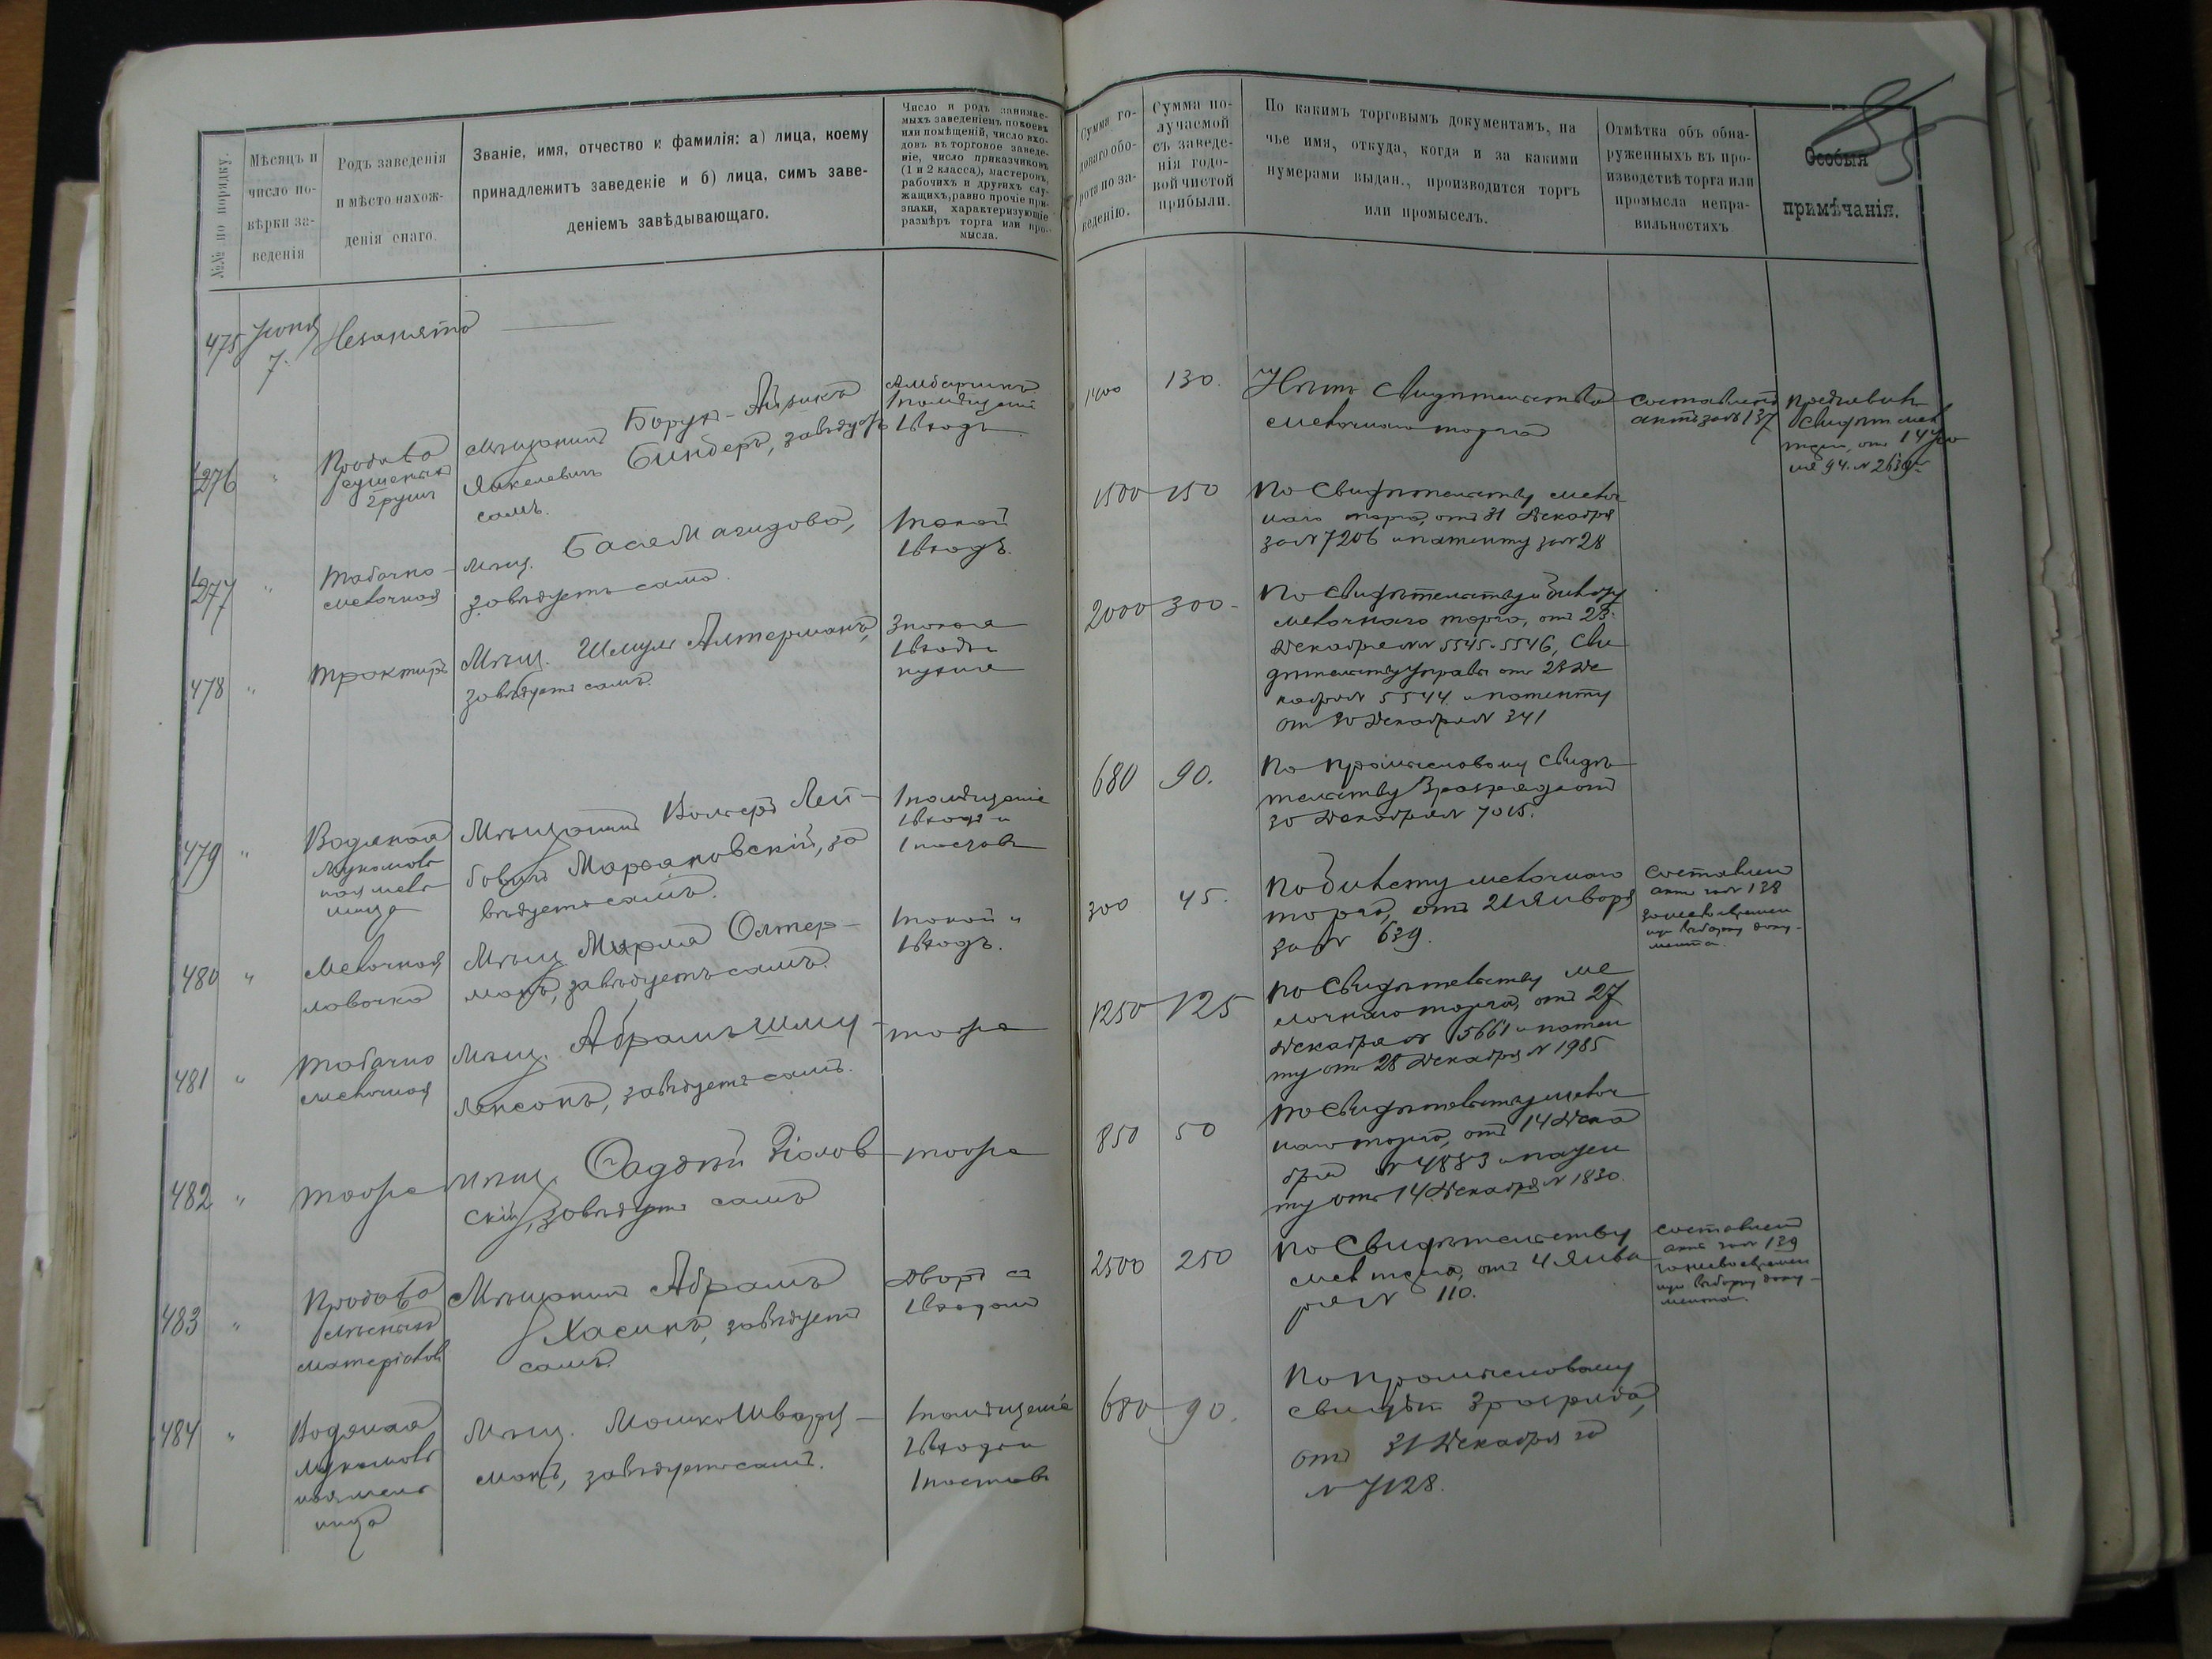 №№ по порядку.
Мѣсяцъ и
число по-
вѣрки за-
веденія
Родъ заведенія
и мѣсто нахож-
денія онаго.
Званіе, имя, отчество и фамилія: а) лица, коему
принадлежитъ заведеніе и б) лица, симъ заве-
деніемъ завѣдывающаго.
Число и родъ занимае-
мыхъ заведеніемъ покоевъ
или помѣщеній, число вхо-
довъ въ торговое заведе-
ніе, число приказчиковъ
(1 и 2 класса), мастеровъ,
рабочихъ и другихъ слу-
жащихъ, равно прочіе при-
знаки, характеризующіе
размѣръ торга или про-
мысла.
Сумма го-
доваго обо-
рота по за-
веденію.
Сумма по-
лучаемой
съ заведе-
нія годо-
вой чистой
прибыли.
По какимъ торговымъ документамъ, на
чье имя, откуда, когда и за какими
нумерами выдан., производится торгъ
или промыселъ.
Отмѣтка объ обна-
руженныхъ въ про-
изводствѣ торга или
промысла непра-
вильностяхъ
Особыя
примѣчанія.
475 Іюня
7.
Незанято
276 "
Продажа
сушеныхъ
грушъ
Мѣщанинъ Борух-Айзикъ
Янкелевичъ Бинберъ, завѣдуетъ
самъ.
Амбарчикъ
1 помѣщеніе
1 входъ
1400
130.
Нѣтъ Свидѣтельства
мелочнаго торга
составленъ
актъ за № 137
предъявилъ
Свидѣт. мел.
торга, отъ 14 Ію
ня 94. № 2639
277 "
Табачно-
мелочная
Мѣщ. Бася Магидова,
завѣдуетъ сама.
1 покой
1 входъ.
1500
150
По Свидѣтельству мелоч
наго торга, отъ 31 Декабря
за № 7206 и патенту за № 28
478 "
Трактиръ
Мѣщ. Шмуль Алтерманъ,
завѣдуетъ самъ.
3 покоя
1 входъ
кухня
2000
300-
По Свидѣтельству и билету
мелочнаго торга, отъ 23.
Декабря №№ 5545-5546, Сви
дѣтельству Управы отъ 23 Де
кабря № 5544 и патенту
отъ 30 Декабря № 341
479 "
Водяная
мукомоль
ная мель
ница
Мѣщанинъ Волько Лей-
бовичъ Маръяновскій, за
вѣдуетъ самъ.
1 помѣщеніе
1 входъ и
1 поставъ
680
90.
По промысловому Свидѣ
тельству 3 разряда, отъ
30 Декабря № 7015.
480 "
Мелочная
лавочка
Мѣщ. Мирма Олтер-
манъ, завѣдуетъ самъ.
1 покой и
1 входъ.
300
45.
По билету мелочнаго
торга, отъ 21 Января
за № 639.
Составленъ
актъ за № 138
за несвоевремен
ную выборку доку-
мента.
481 "
Табачно
мелочная
Мѣщ. Абрамъ Шму-
ленсонъ, завѣдуетъ самъ.
тоже
1250
125
По Свидѣтельству ме
лочнаго торга, отъ 27
Декабря № 5661 и патен
ту отъ 28 Декабря № 1985
482 "
тоже
Мѣщ. Садоній Віолов
скій, завѣдуетъ самъ
тоже
850
50
По Свидѣтельству мелоч
наго торга, отъ 14 Дека
бря № 4883 и патен
ту отъ 14 Декабря № 1830.
483 "
Продажа
лѣсныхъ
матеріаловъ
Мѣщанинъ Абрамъ
Хасинъ, завѣдуетъ
самъ.
Дворъ съ
1 входомъ
2500
250
По Свидѣтельству
мел. торга, отъ 4 Янва
ря № 110.
Составленъ
актъ за № 139
за несвоевремен
ную выборку доку-
мента.
484 "
Водяная
мукомоль
ная мель
ница
Мѣщ. Мошко Шварц-
манъ, завѣдуетъ самъ.
1 помѣщеніе
1 входъ и
1 поставъ
680
90.
По промысловому
свидѣт. 3 разряда,
отъ 31 Декабря за
№ 7128.